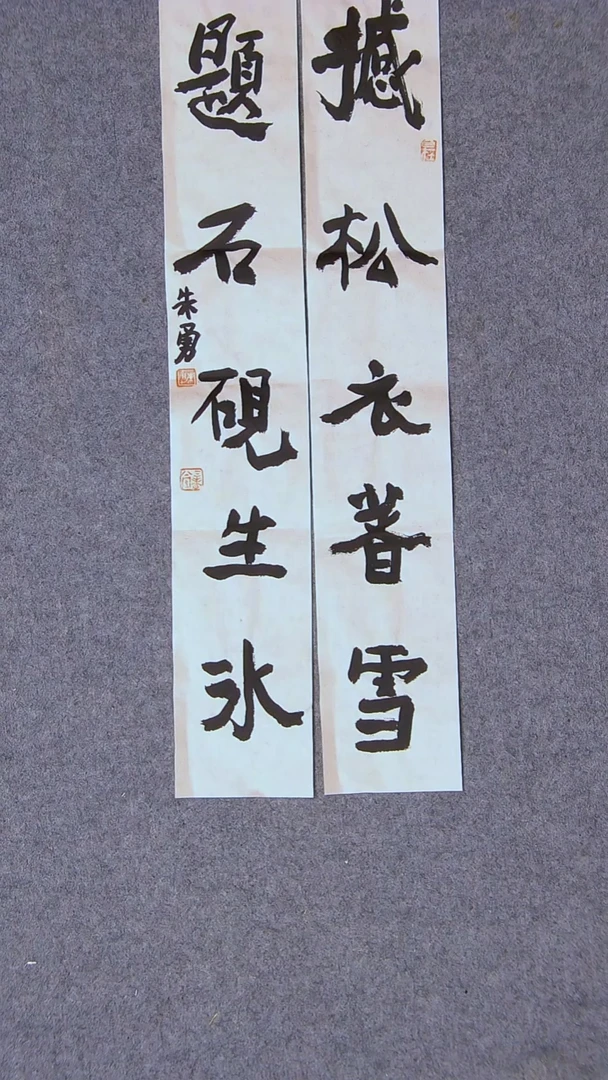 撼松衣著雪
題石硯生氷
朱勇